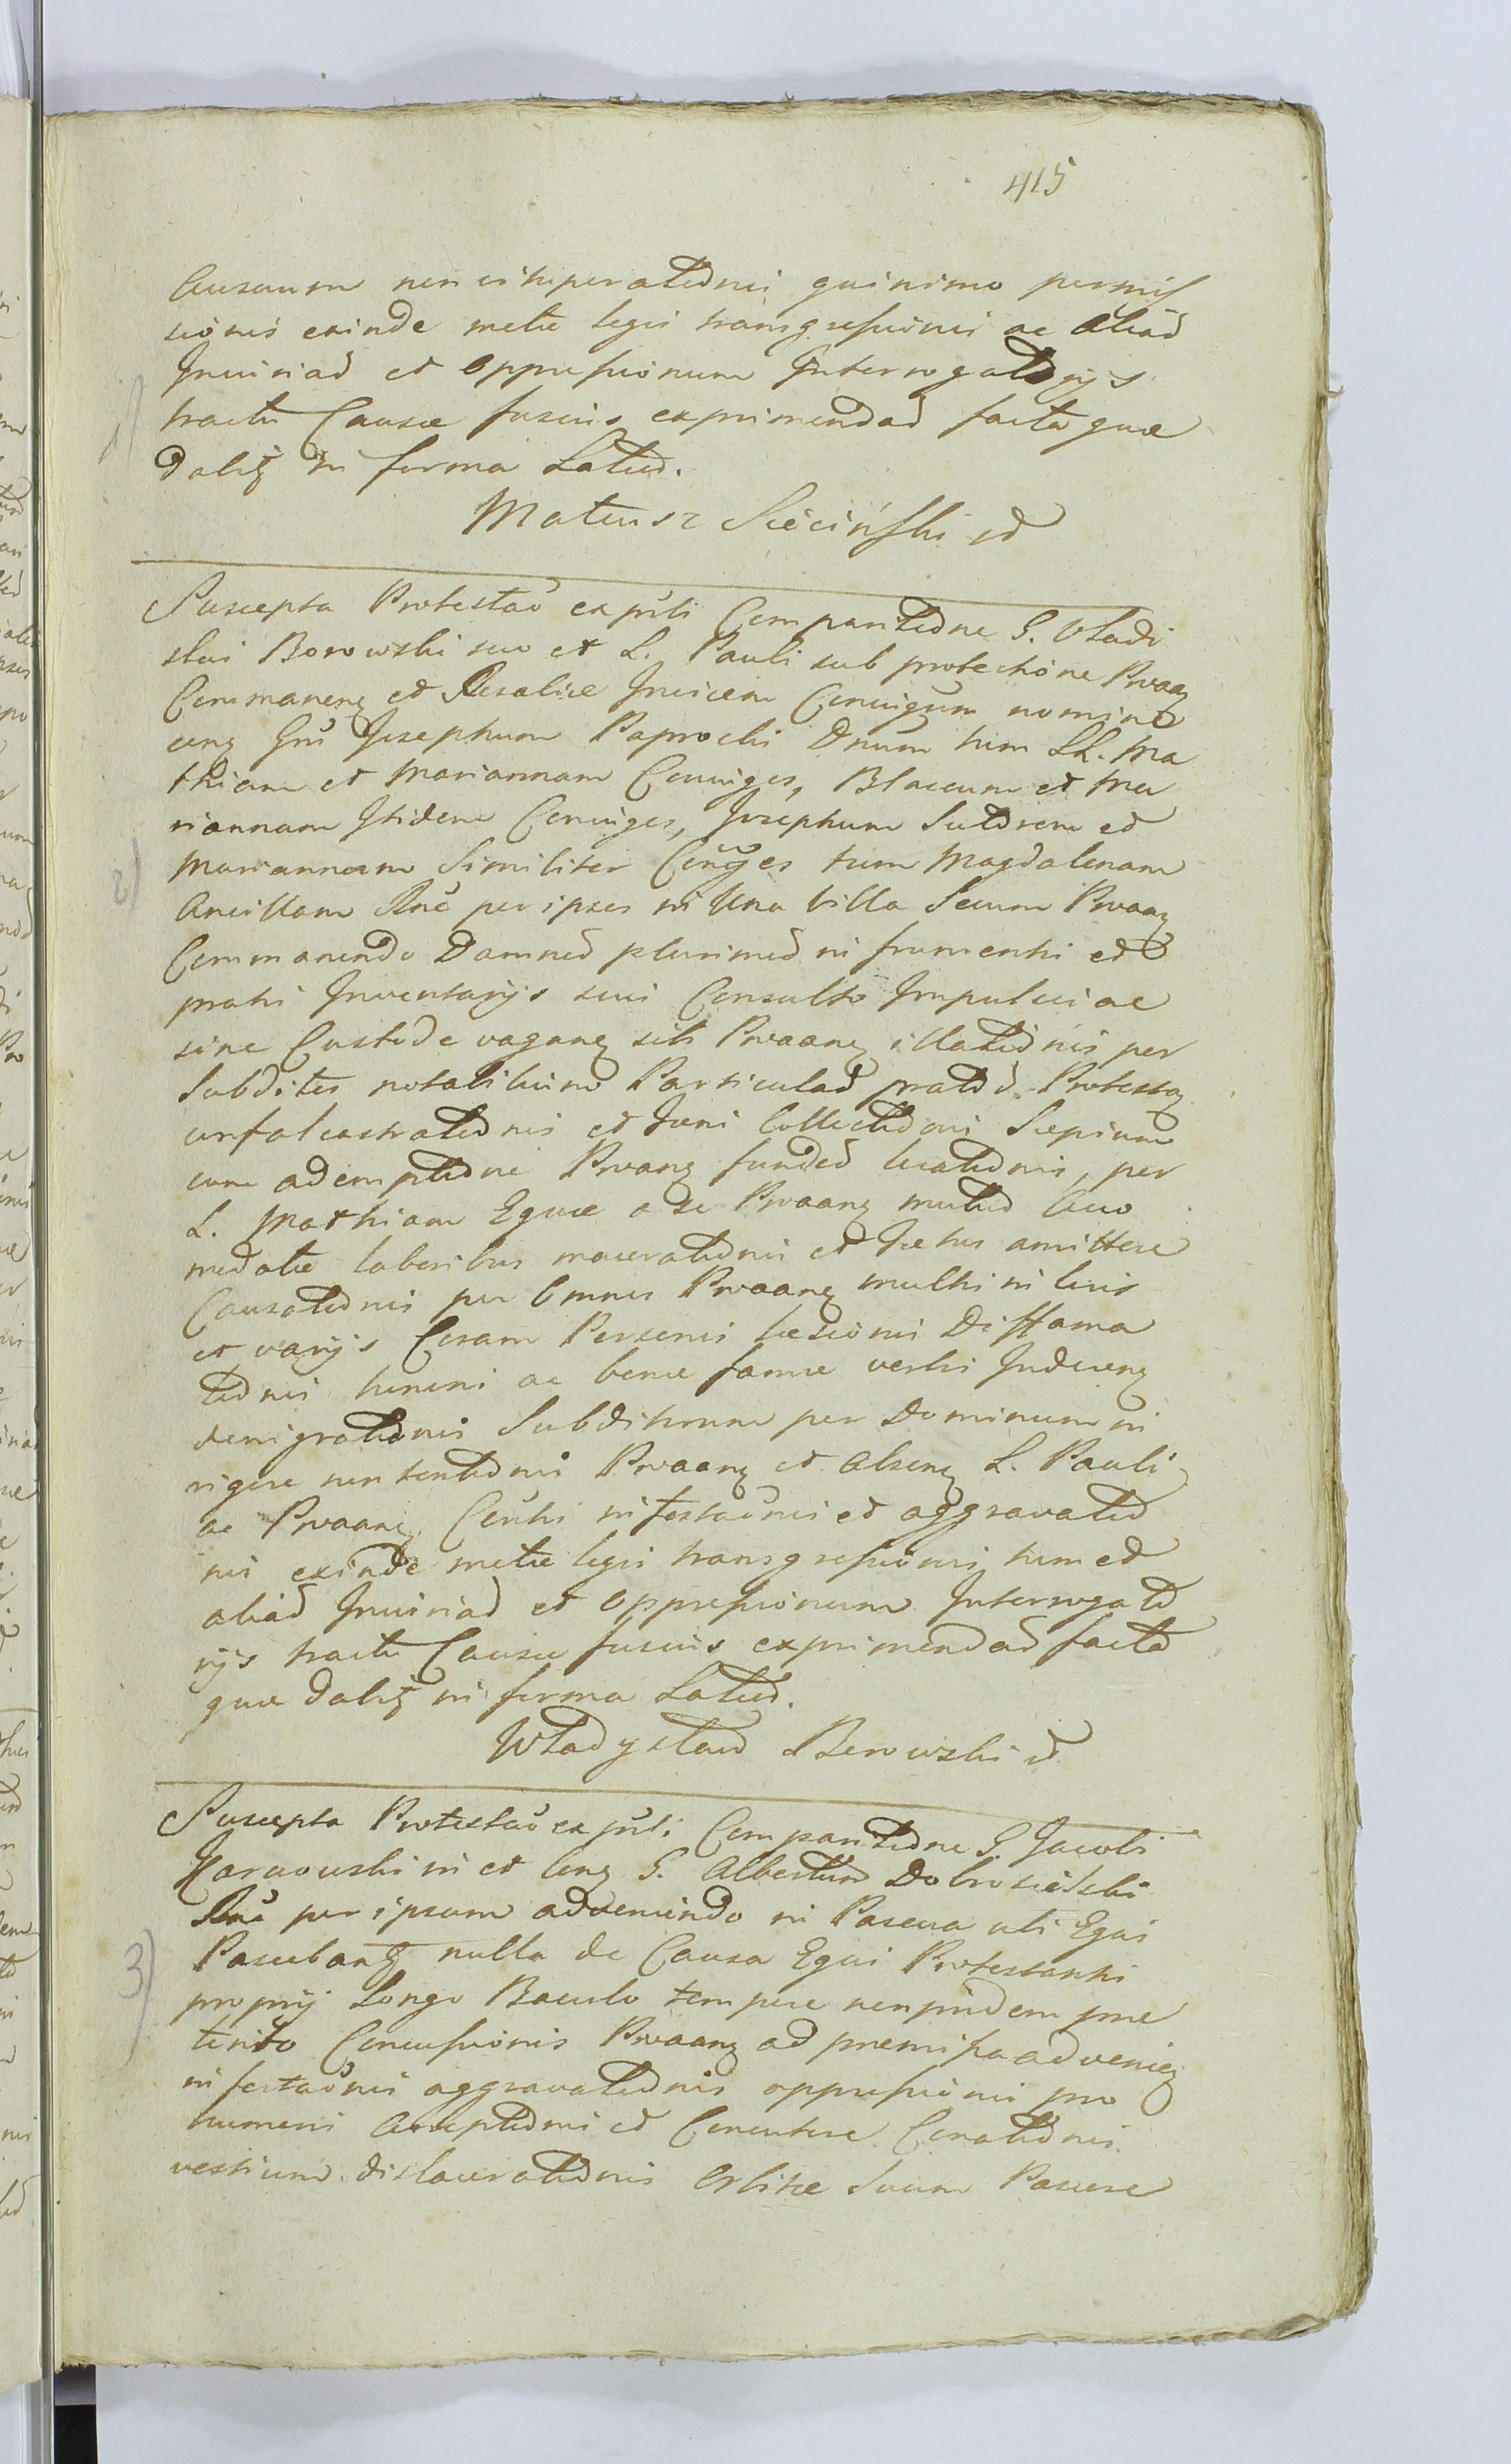 415
Ausuum non vituperationis quinimo permis
sionis exinde metæ legis transgressionis ac aliar
Injuriar et oppressionum Interrogatorijs
tractu Causæ fusius exprimendar factaque
1)
datis in forma Latior.
Mateusz Sięciński
Suscepta Protestao ex pñti Comparitione G. Vladi
slai Borowski suo et L. Pauli sub protectione Prvaa
Commanen et Rosaliæ Invicem Conjugum nomine
con Gñi Josephum Paprocki Dnum tum LL. Ma
thiam et Mariannam Conjuges, Blasium et Ma
riannam Itidem Conjuges, Josephum Sutorem et
Mariannam Similiter Conges tum Magdalenam
2)
Ancillam Rne per ipsos in Una Villa Secum Prvaan
Commanendo Damnor plurimor in frumenti et
prati Inventarijs sui Consulto Impulsui ac
sine Custode vagan sibi Prvaan illationis per
Subditos notabilium Particular prator Protestan
unfalcastrationis et Fæni Collectionis Sæpium
cum ademptione Prvaan fundor locationis, per
L. Mathiam Equæ a se Prvaan mutuo Acco
medatæ laboribus macerationis et Fætus amittere
Causationis per Omnes Prvaan multis in locis
et varijs Coram Personis læsionis Diffama
tionis honoris ac bonæ famæ verbis Indecen
denigrationis Subditorum per Dominum in
rigore non tentionis Prvaan et Absen L. Pauli
ac Prvaan Conthi infestaonis et aggravatio
nis exinde metæ legis transgressionis tum et
aliar Injuriar et oppressionum Interrogato
rijs tractu Causæ fusius exprimendar facta
que datis in forma Latior.
Władysław Borowski
Suscepta Protestao ex pñti Comparitione G. Jacobi
Karwowski in et con G. Albertum Dobrosielski
Rne per ipsum adveniendo in Pascua ubi Equi
Pascebant nulla de Causa Equi Protestantis
3)
proprij Longo Baculo tempore non pridem præ
terito Concussionis Prvaan ad præmissa advenien
infestaonis aggravationis oppressionis pro
humeri Arreptionis et Concutere Conationis
vestium dislacerationis Orbitæ Suum Pascere